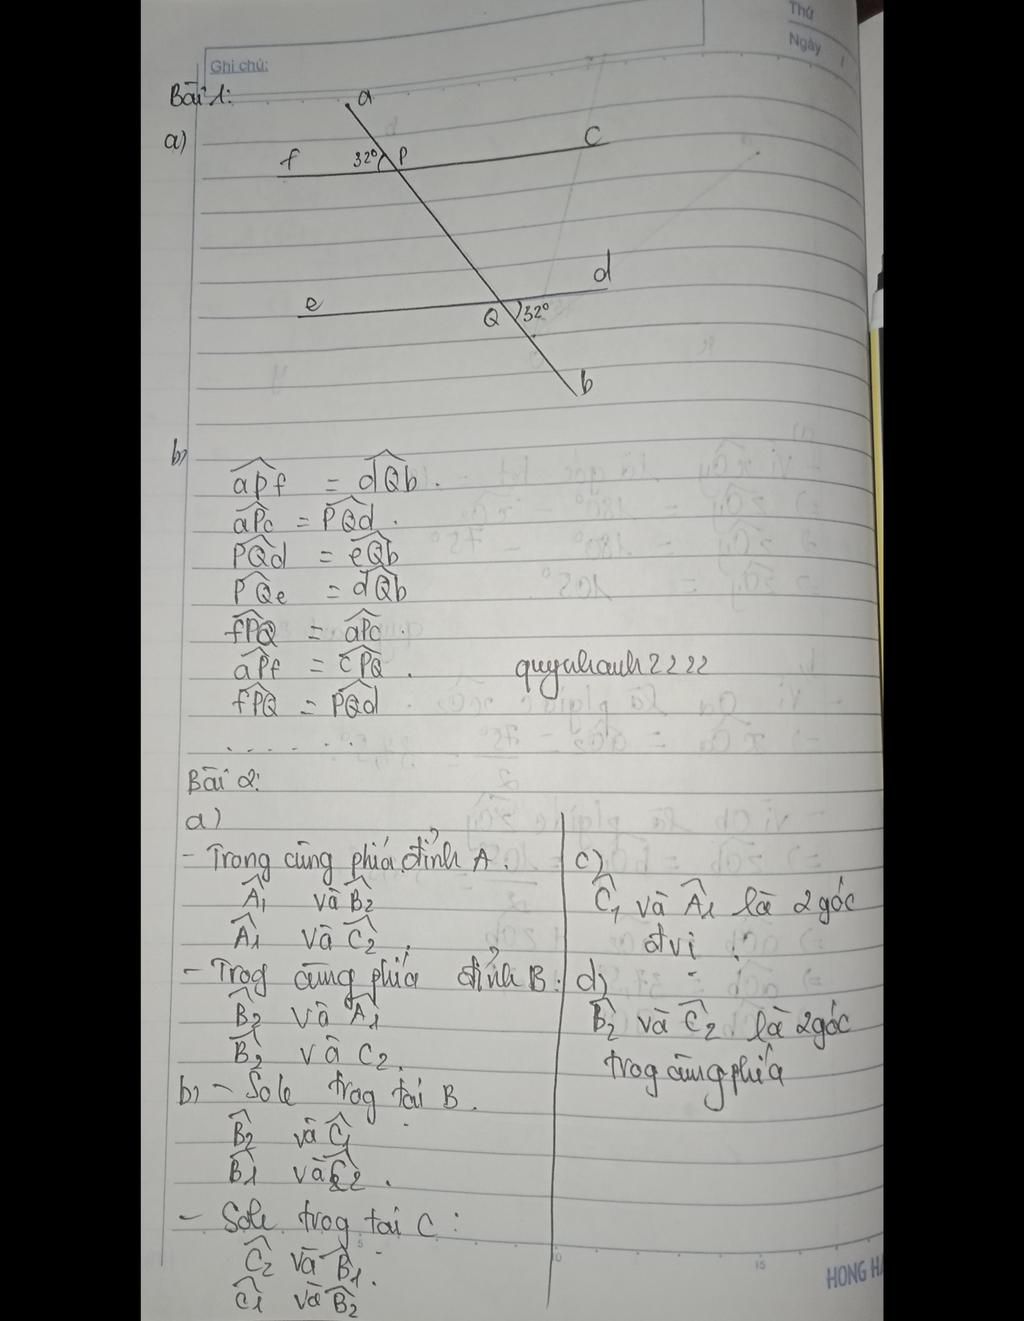 Thứ
Ngày
Ghi chú:
Bài 1:
a)
a
f 32° P c
e Q 32° d
b
b)
aPf = dQb.
aPc = PQd.
PQd = eQb
PQe = dQb
fPQ = aPc.
aPf = cPQ.
quynhanh2222
fPQ = PQd
.......
Bài 2:
a)
- Trong cùng phía đỉnh A.
Â1 và B̂2
Â1 và Ĉ2.
- Trog cùng phía đỉnh B:
B̂2 và Â1
B̂2 và C2.
b) - Sole trog tại B.
B̂2 và Ĉ1
B̂1 và Ĉ2.
- Sole trog tại C:
Ĉ2 và B̂1.
Ĉ1 và B̂2
c)
Ĉ1 và Â1 là 2 góc
đvị.
d)
B̂2 và Ĉ2 là 2 góc
trog cùng phía
5 10 15
HONG HA